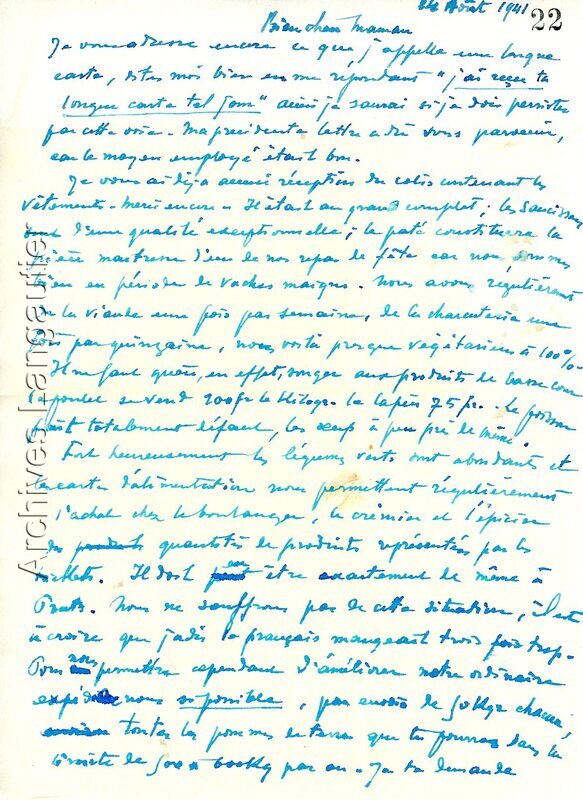 24 Août 1941
22
Bien chère Maman
Je vous adresse encore ce que j'appelle une longue
carte, dites moi bien en me répondant "j'ai reçu ta
longue carte tel jour" ainsi je saurai si je dois persister
par cette voie - Ma précédente lettre a dû vous parvenir,
car le moyen employé était bon.
Je vous ai déjà accusé réception du colis contenant les
vêtements - Merci encore - Il était au grand complet ; les saucisses
sont d'une qualité exceptionnelle ; le pâté constituera la
pièce maitresse d'un de nos repas de fête car nous sommes
bien en période de vaches maigres - Nous avons régulièrement
de la viande une fois par semaine, de la charcuterie une
fois par quinzaine, nous voilà presque végétariens à 100%.
Il ne faut guère, en effet, songer aux produits de basse cour
le poulet se vend 200fr le kilogr. le lapin 75 fr. - Le poisson
fait totalement défaut, les oeufs à peu près de même.
Fort heureusement les légumes verts sont abondants et
les cartes d'alimentation nous permettent régulièrement
l'achat chez le boulanger, le crémier et l'épicier
des produits quantités de produits représentées par les
tickets. Il doit en être exactement de même à
Prats. Nous ne souffrons pas de cette situation, il est
à croire que jadis le français mangeait trois fois trop -
Pour nous permettre cependant d'améliorer notre ordinaire
nous si possible, par envois de 50kgr chacun,
toutes les pommes de terre que tu pourras dans la
limite de 500 à 600kg par an - Je te demande
Archives Langautier